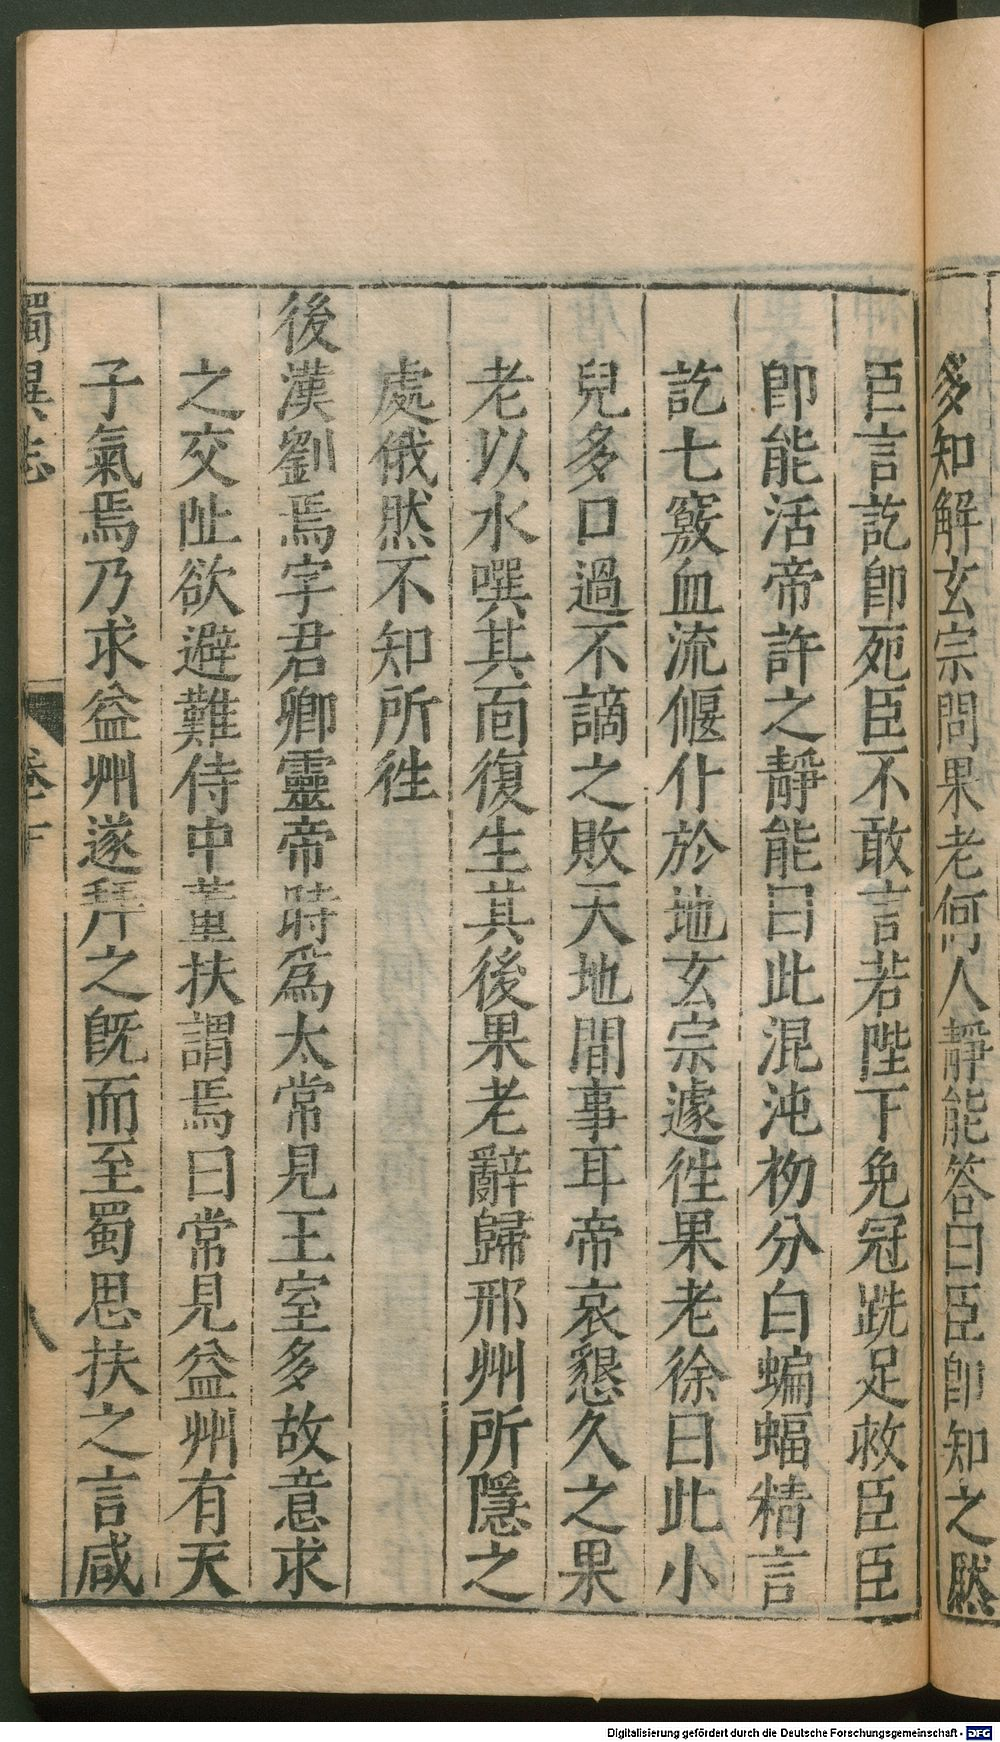 多知解玄宗問果老何人靜能答曰臣卽知之然
臣言訖卽死臣不敢言若陛下免冠跣足救臣臣
卽能活帝許之靜能曰此混沌初分白蝙蝠精言
訖七竅血流偃仆於地玄宗遽徃果老徐曰此小
兒多口過不謫之敗天地間事耳帝哀懇久之果
老以水噀其面復生其後果老辭歸邢州所隱之
處俄然不知所徃
後漢劉焉字君卿靈帝時爲太常見王室多故意求
之交阯欲避難侍中董扶謂焉曰常見益州有天
子氣焉乃求益州遂拜之旣而至蜀思扶之言咸
獨異志
卷下
八
Digitalisierung gefördert durch die Deutsche Forschungsgemeinschaft - DFG